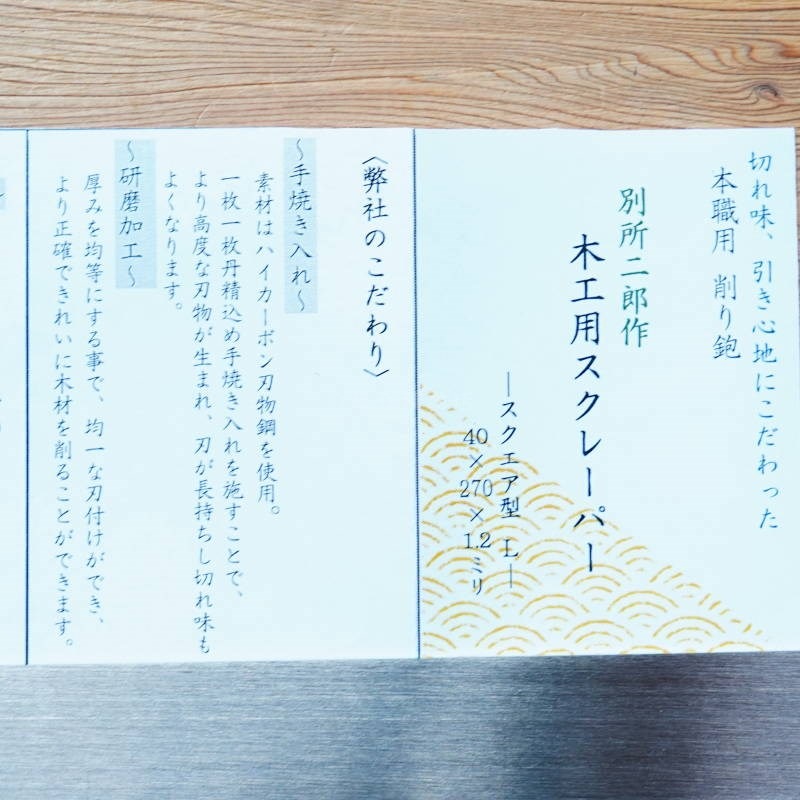 切れ味、引き心地にこだわった
本職用 削り鉋
別所二郎作
木工用スクレーパー
―スクエア型 L―
40×270×1.2ミリ
〈弊社のこだわり〉
～手焼き入れ～
素材はハイカーボン刃物鋼を使用。
一枚一枚丹精込め手焼き入れを施すことで、
より高度な刃物が生まれ、刃が長持ちし切れ味も
よくなります。
～研磨加工～
厚みを均等にする事で、均一な刃付けができ、
より正確できれいに木材を削ることができます。